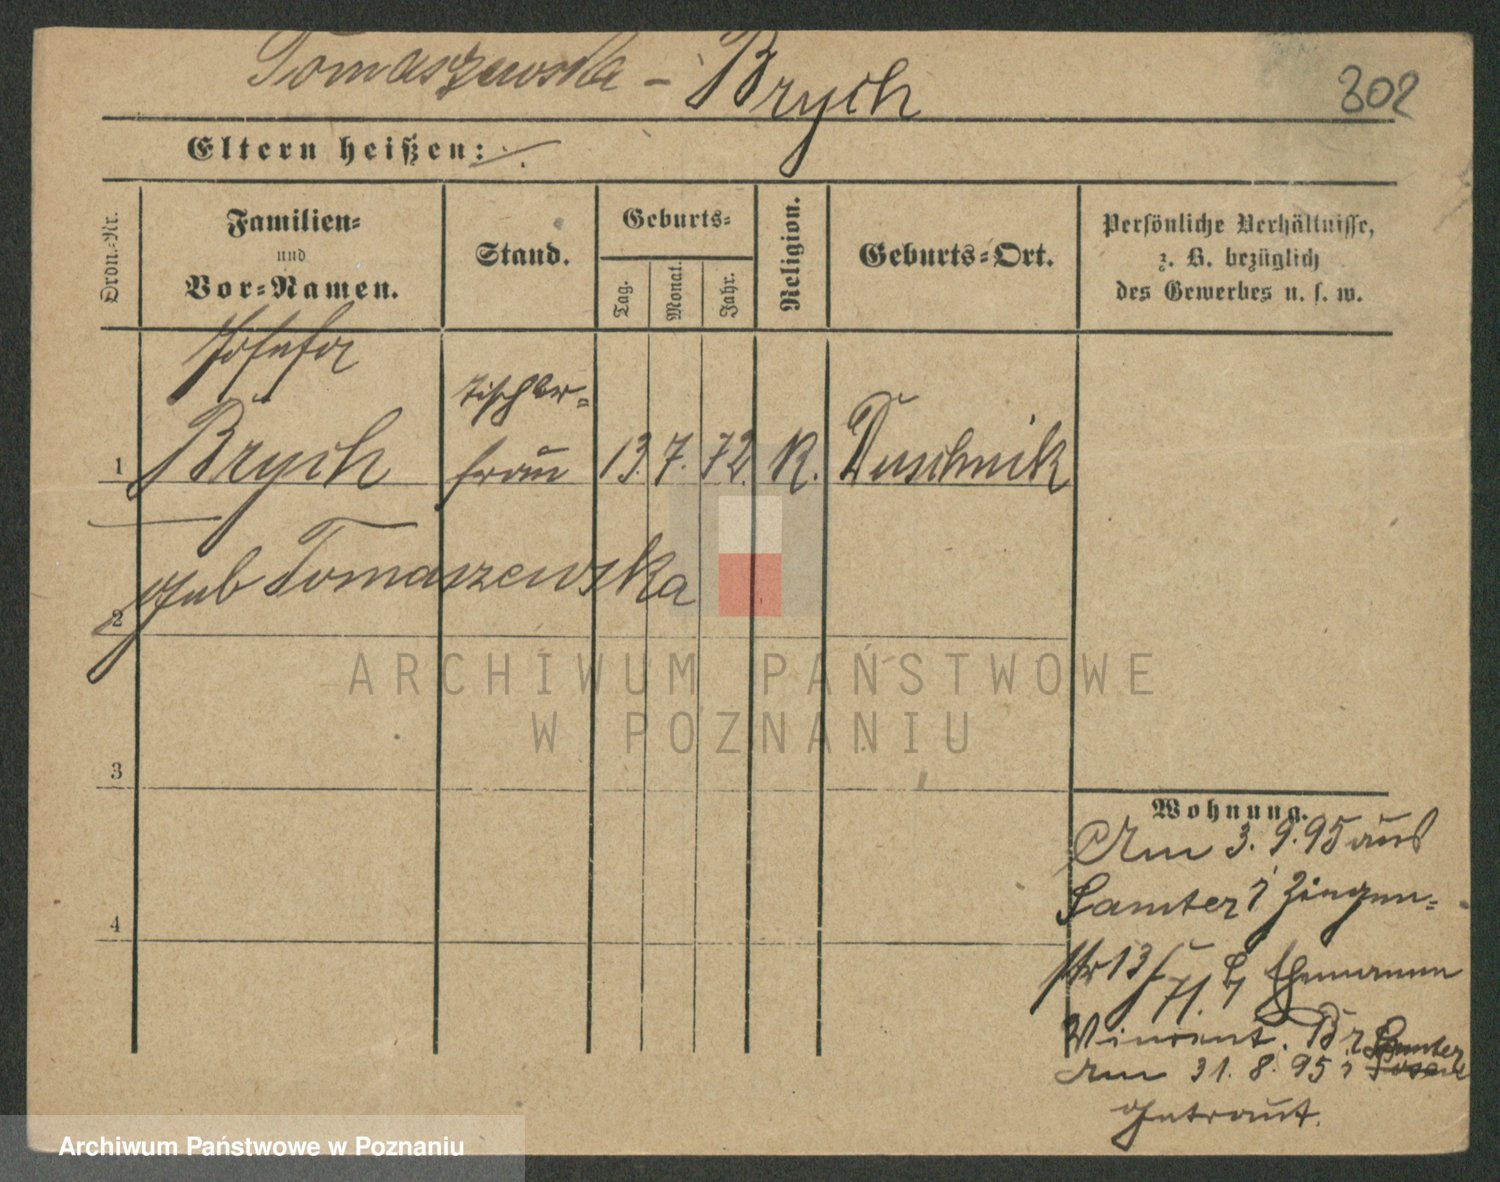 Tomaszewska - Brych
302
Eltern heißen:
Ordn.-Nr.
Familien-
und
Vor-Namen.
Stand.
Geburts-
Tag.
Monat.
Jahr.
Religion.
Geburts-Ort.
Persönliche Verhältnisse,
z. B. bezüglich
des Gewerbes u. s. w.
Josefa
Tischler-
1 Brych frau 13. 7. 72. K. Duschnik
geb Tomaszewska
2
3
4
ARCHIWUM PAŃSTWOWE
W POZNANIU
Wohnung.
Am 3. 9. 95 aus
Samter Ziegen-
str 13 Ehemann
Vincent. Br
Samter
Am 31. 8. 95 i Posen
getraut.
Archiwum Państwowe w Poznaniu